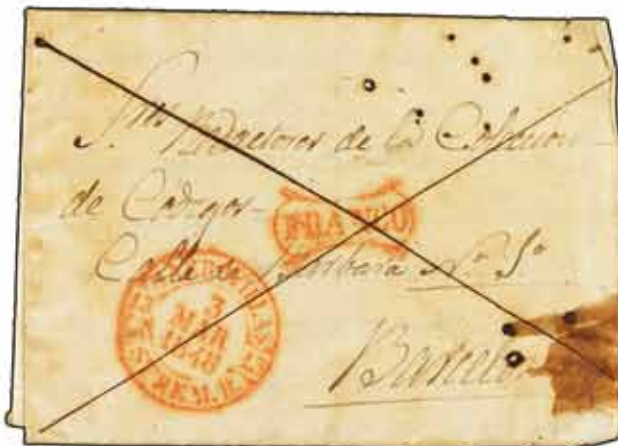 Sres Redactores de la Colección
de Codigos
FRANCO
Calle de Barbará Nº 5º
3
1848
Barcelo